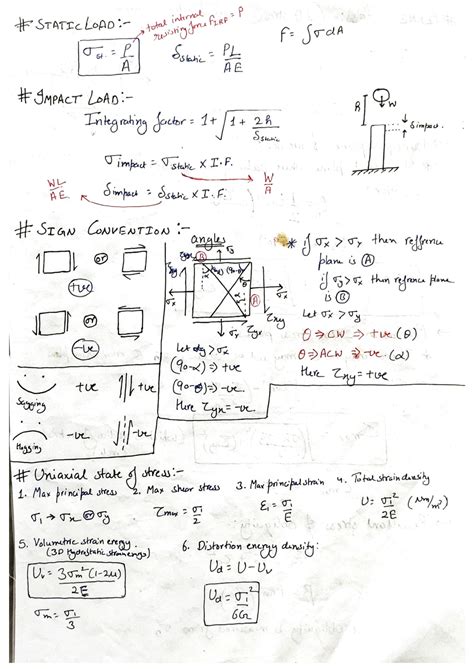 # STATIC LOAD:-
total internal
resisting force FIRF = P
σst. = P/A
δstatic = PL/AE
F = ∫σdA
# IMPACT LOAD:-
Integrating factor = 1+√(1 + 2h/δstatic)
h
W
δimpact.
σimpact = σstatic × I.F.
W/A
WL/AE
δimpact = δstatic × I.F.
# SIGN CONVENTION:-
or
+ve
or
-ve
Sagging
+ve
+ve
Hogging
-ve
-ve
angles
B
σy
(90-α)
(90-θ)
θ
α
A
σx
σx
τxy
σy
τyx
Let σy > σx
(90-α) ⇒ +ve
(90-θ) ⇒ -ve.
Here τyx = -ve.
* if σx > σy then refference
plane is A
if σy > σx then refrence plane
is B
Let σx > σy
θ ⇒ CW ⇒ +ve (θ)
θ ⇒ ACW ⇒ -ve. (α)
Here τxy = +ve
# Uniaxial state of stress:-
1. Max principal stress
σ1 → σx or σy
2. Max shear stress
τmax = σ1/2
3. Max principal strain
ε1 = σ1/E
4. Total strain density
U = σ1²/2E (Nm/m³)
5. Volumetric strain energy.
(3D Hydrostatic strain engg)
Uv = 3σm²(1-2μ)/2E
σm = σ1/3
6. Distortion energy density:
Ud = U - Uv
Ud = σ1²/6G